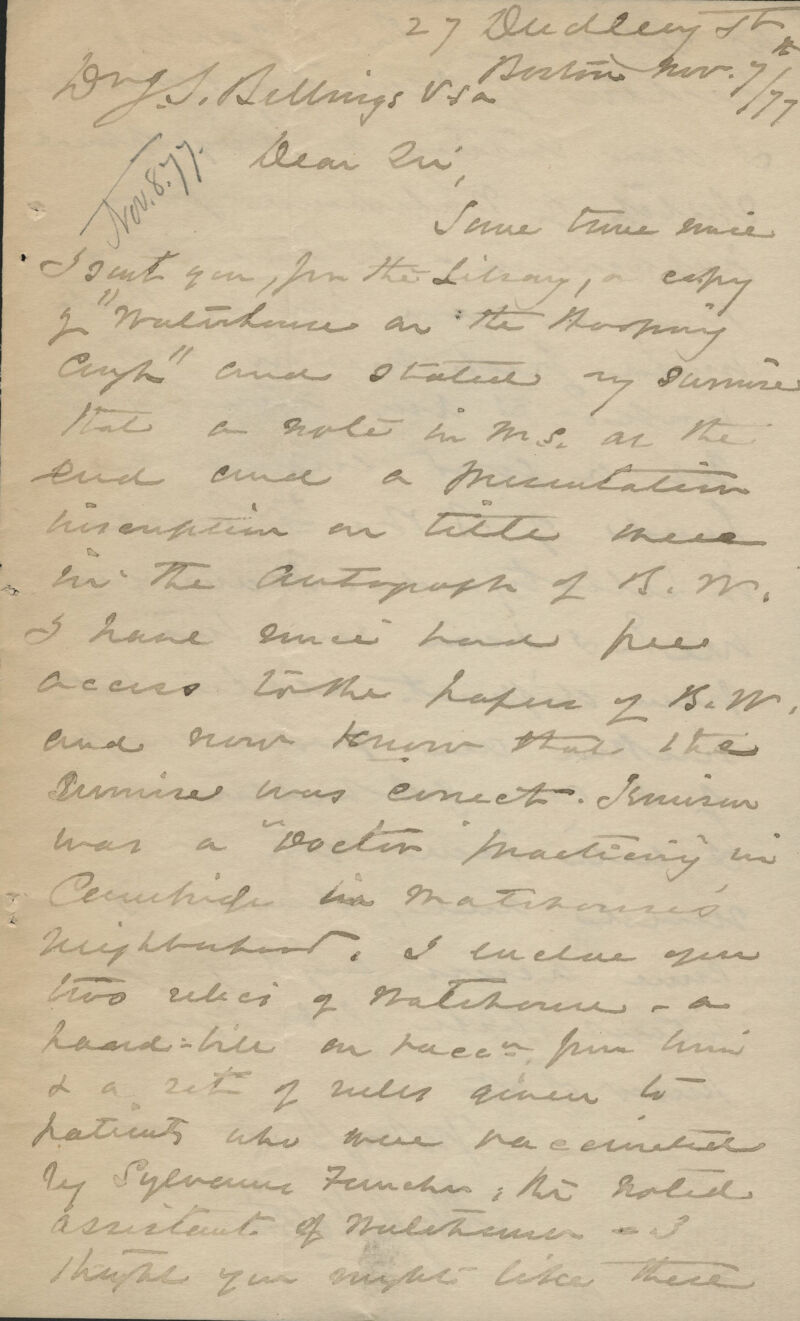 27 Dudley St
Boston Nov. 7th/77
Dr J. S. Billings USA
Nov. 8. 77.
Dear Sir,
Some time since
I sent you, for the Library, a copy
of "Waterhouse on the Hooping
Cough" and stated my surmise
that a note in M.S. at the
end and a presentation
inscription on title were
in the autograph of B. W.
I have since had free
access to the papers of B. W.
and now know that the
surmise was correct.
was a "Doctor" practicing in
Cambridge in Waterhouse's
neighborhood. I enclose you
two relics of Waterhouse - a
hand-bill on vaccn. from him
& a set of rules given to
patients who were vaccinated
by Sylvanus Fancher, the noted
assistant of Waterhouse - I
thought you might like these